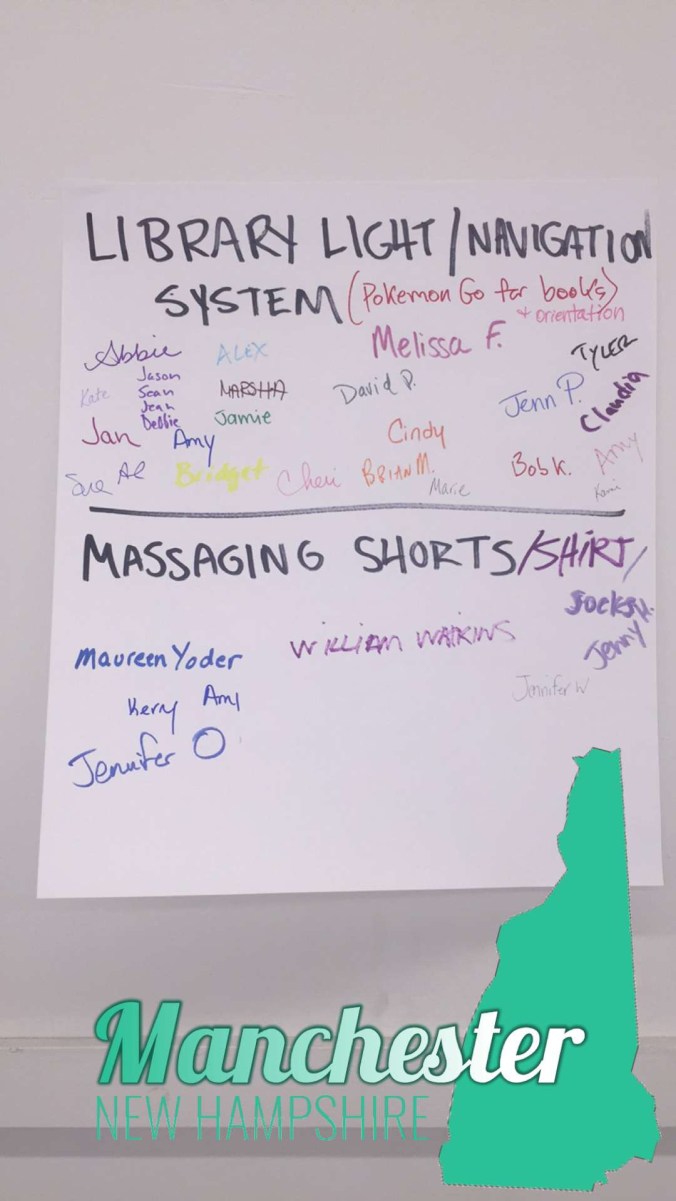 LIBRARY LIGHT/NAVIGATION
SYSTEM (Pokemon Go for books)
+ orientation
Abbie ALEX Melissa F. TYLER
Jason
Kate Sean MARSHA David P. Jenn P. Claudia
Jean
Debbie Jamie
Jan Amy Cindy
Sue Al Bridget Cheri BRIAN M. Marie Bob K. Amy
Kami
MASSAGING SHORTS/SHIRT/
SOCKS
Maureen Yoder WILLIAM WATKINS Jenny
Kerry Amy Jennifer W
Jennifer O
Manchester
NEW HAMPSHIRE